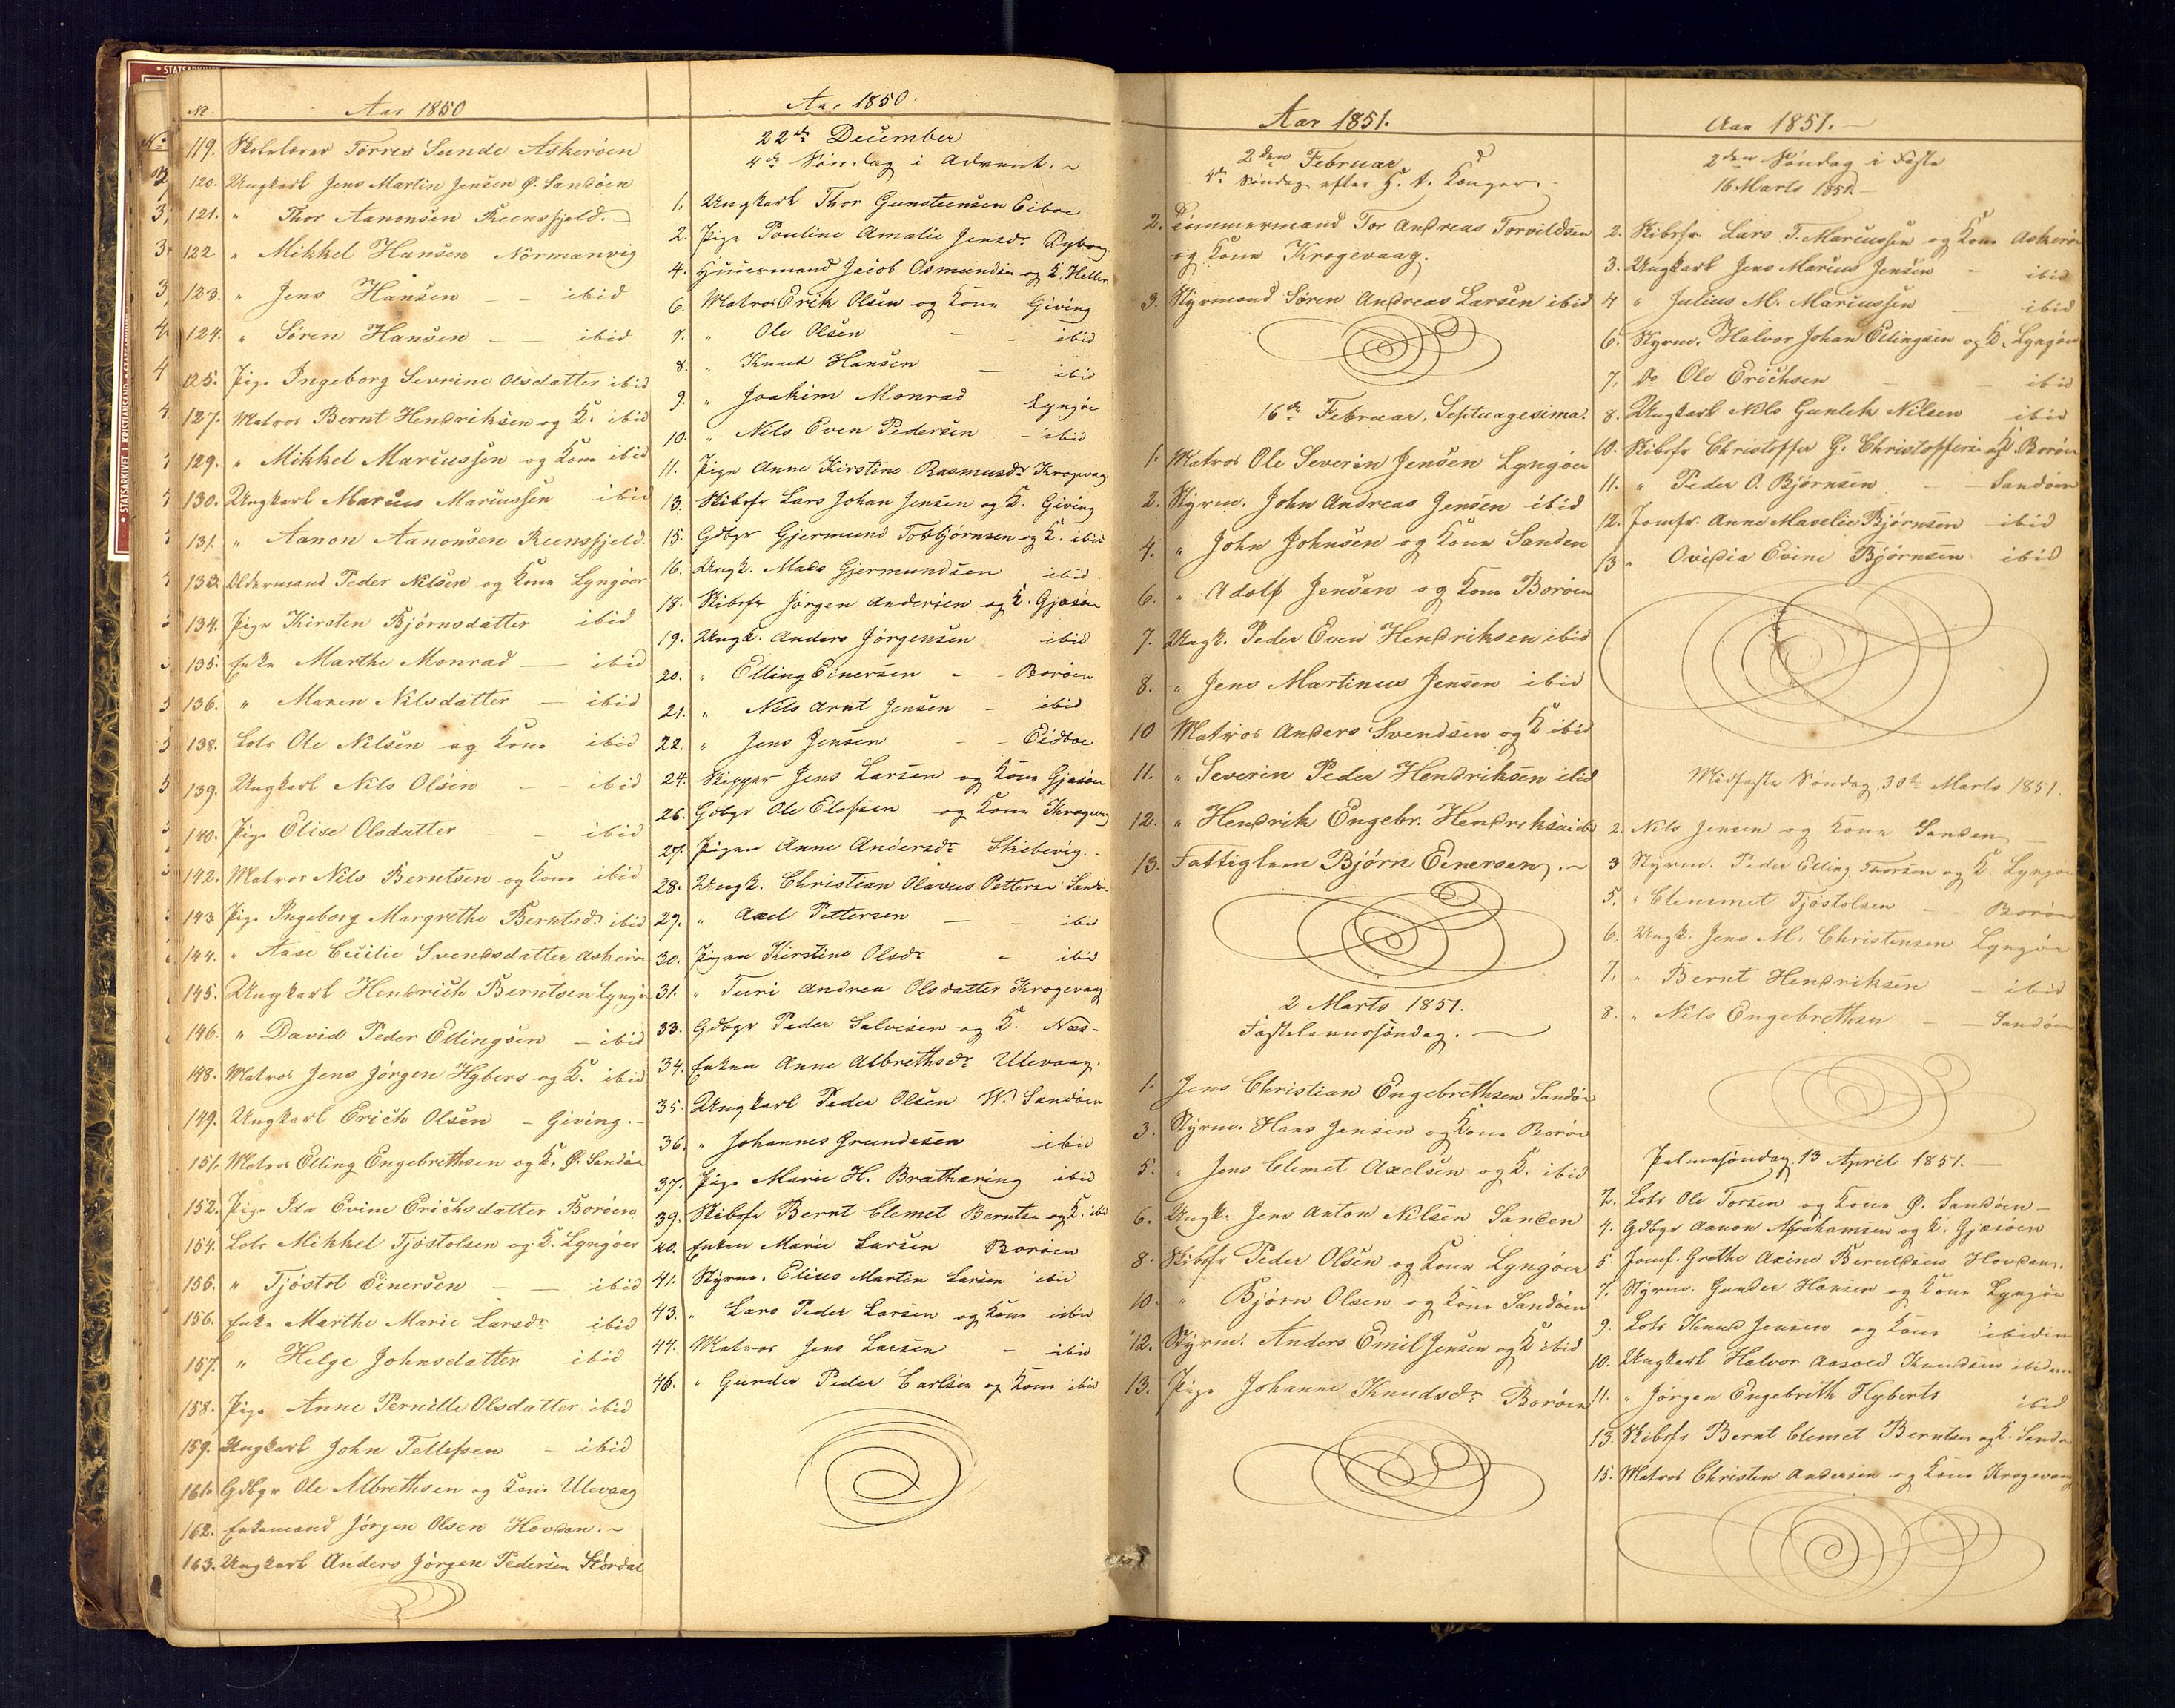 No. Aar 1850
119. Skolelærer Torres Sunde Askerøen
120. Ungkarl Jens Martin Jensen Ø. Sandøen
121. " Thor Aanonsen Reensfjeld.
122 " Mikkel Hansen Normanvig
123. " Jens Hansen - - ibid
124. " Søren Hansen - - ibid
125. Pige Ingeborg Sevrine Olsdatter ibid
127. Matros Bernt Hendriksen og K. ibid
129. " Mikkel Mariussen og Kone ibid
130. Ungkarl Marius Mariussen ibid
131. " Aanon Aanonsen Reensfjeld.
133. Oldermand Peder Nilsen og Kone Lyngøer
134. Pige Kirsten Bjørnsdatter ibid
135. Enke Marthe Monrad - ibid
136. " Maren Nilsdatter - ibid
138. Lods Ole Nilsen og Kone ibid
139. Ungkarl Nils Olsen - - ibid
140. Pige Elise Olsdatter - ibid
142. Matros Nils Berntsen og Kone ibid
143 Pige Ingeborg Margrethe Berntsdr ibid
144. " Aase Cecilie Svendsdatter Askerøe
145. Ungkarl Hendrich Berntsen Lyngør
146. " David Peder Ellingsen - ibid
148. Matros Jens Jörgen Hybers og K. ibid
149. Ungkarl Erich Olsen - Giving.-
151. Matros Elling Engebrethsen og K. Ø. Sandøe
152. Pige Ida Evine Erichsdatter Borøen
154. Lods Mikkel Tjøstolsen og K. Lyngøer
156. " Tjøstol Einersen - - ibid
156. Enke Marthe Marie Larsdr ibid
157. " Helge Johnsdatter ibid
158. Pige Anne Pernille Olsdatter ibid
159. Ungkarl John Tellefsen - ibid
161. Gdbgr Ole Albrethsen og Kone Ulevaag
162. Enkemand Jörgen Olsen Hovdan.-
163. Ungkarl Anders Jörgen Pedersen Stördal
Aar 1850.
22de December
4de Søndag i Advent.-
1. Ungkarl Thor Gunsteensen Eiboe
2. Pige Pouline Amalie Jensdr Dybvaag
4. Huusmand Jacob Osmundsen og K. Hellen
6. Matros Erik Olsen og Kone Giving
7. " Ole Olsen - - ibid
8. " Knud Hansen - ibid
9. " Joakim Monrad Lyngøe
10. " Nils Even Pedersen - ibid
11. Pige Anne Kirstine Rasmusdr Krogevaag
13. Skibsfr Lars Johan Jensen og K. Giving
15. Gdbgr Gjermund Tobbjørnsen og K. ibid
16. Ungk. Mads Gjermundsen ibid
18. Skibsfr Jörgen Andersen og K. Gjæsøen
19. Ungk. Anders Jörgensen ibid
20. " Elling Einersen - - Borøen
21. " Nils Arnt Jensen - ibid
22. " Jens Jensen - - Eidboe
24. Skipper Jens Larsen og Kone Gjæsøen
26. Gdbgr Ole Olefsen og Kone Krogevg
27. Pigen Anne Andersdr Skibevig.-
28. Ungk. Christian Olavus Petterse Sandøe
29. " Axel Pettersen - - ibid
30. Pigen Kirstine Olsdr - ibid
31. " Turi Andrea Olsdatter Krogevaag
33. Gdbgr Peder Salvesen og K. Næs-
34. Enken Anne Albrethsdr Ulevaag.
35. Ungkarl Peder Olsen W. Sandøen
36. " Johannes Grundesen ibid
37. Pige Marie H. Brathæring ibid
39. Skibsfr Bernt Clemet Berntsen og K. ibid
40. Enken Marie Larsen Borøen
41. Styrm. Elius Martin Larsen ibid
43. " Lars Peder Larsen og Kone ibid
44. Matros Jens Larsen - ibid
46. " Gunder Peder Carlsen og Kone ibid
Aar 1851.
2den Februar
4de Søndag efter H. t. Konger.-
2. Tømmermand Tor Andreas Torvildsen
og Kone Krogevaag.
3. Styrmand Søren Andreas Larsen ibid
16de Februar, Septuagesima.
1. Matros Ole Severin Jensen Lyngøer
2. Styrm. John Andreas Jensen ibid
4. " John Johnsen og Kone Sanden
6. " Adolf Jensen og Kone Borøen
7. Ungk. Peder Even Hendriksen ibid
8. " Jens Martinus Jensen ibid
10 Matros Anders Svendsen og K ibid
11. " Severin Peder Hendriksen ibid
12. " Hendrik Engebr. Hendriksen ibd
13. Fattiglem Bjørn Einersen.-
2 Marts 1851.
Fastelavnssøndag.-
1. Jens Christian Engebrethsen Sandøe
3. Styrm. Hans Jensen og Kone Borøe
5. " Jens Clemet Axelsen og K. ibid
6. Ungk. Jens Anton Nilsen Sanden
8. Skibsfr Peder Olsen og Kone Lyngøer
10. " Bjørn Olsen og Kone Sandøen
12. Styrm. Anders Emil Jensen og K ibid
13. Pige Johanne Knudsdr Borøen
Aar 1851.-
2den Søndag i Faste
16 Marts 1851.-
2. Skibsfr. Lars T. Mariussen og Kone Askerøe
3. Ungkarl Jens Marius Jensen - ibid
4 " Julius M. Mariussen - ibid
6. Styrm. Halvor Johan Ellingsen og K. Lyngøer
7. do Ole Erichsen - - - ibid
8. Ungkarl Nils Gunleh Nilsen ibid
10. Skibsfr Christoffer G. Christoffersen og K Borøen
11. " Peder O. Bjørnsen - - Sandøen
12. Jomfr. Anne Maselie Bjørnsen ibid
13 " Ovidia Evine Bjørnsen ibid
Midfaste Søndag 30te Marts 1851.
2. Nils Jensen og Kone Sanden -
3 Styrm. Peder Elling Thorsen og K. Lyngøe
5. " Clemmet Tjøstolsen - - Borøen
6. Ungk. Jens M. Christensen Lyngøe
7. " Bernt Hendriksen - ibid
8. " Nils Engebrethsen - - Sandøen
Palmesöndag 13 April 1851.-
2. Lods Ole Torsen og Kone Ø. Sandøen-
4. Gdbgr Aanon Abrahamsen og K. Gjæsøen
5 Jomf. Grethe Axine Berntdsen Hovdan.
7. Styrm. Gunder Hansen og Kone Lyngøe
9. Lods Knud Jensen og Kone ibidem
10. Ungkarl Halvor Aasold Knudsen ibidem
11. " Jörgen Engebreth Hyberts ibid
13. Skibsfr Bernt Clemet Berntsen og K. Sandøe
15. Matros Christen Andersen og Kone Krogevaag